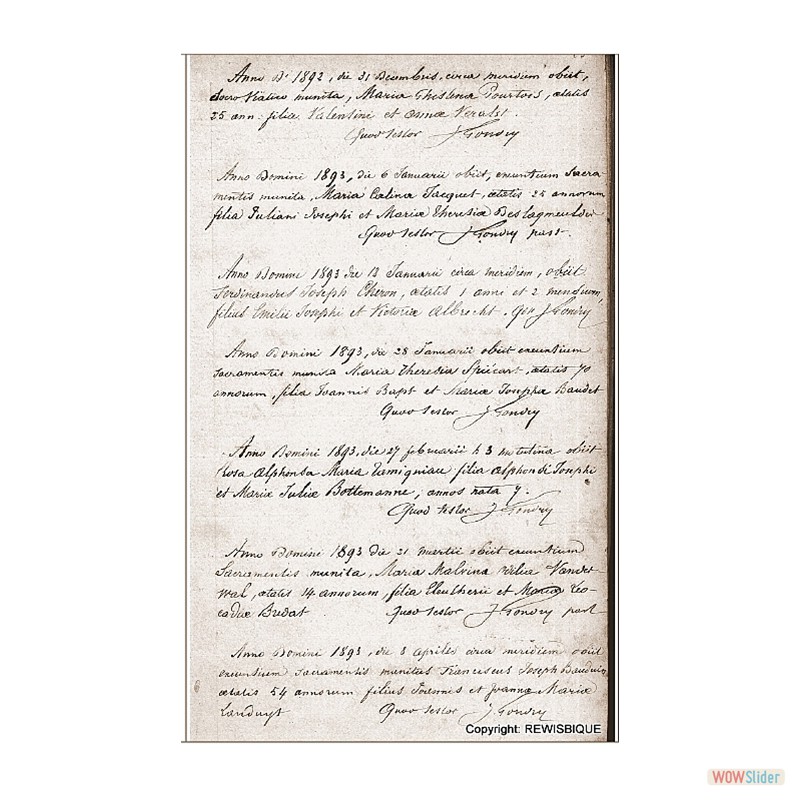 Anno D' 1892, die 31 Decembris, circa meridiem obiit,
Sacro Viatico munita, Maria Ghislena Pourtois, ætatis
25 ann: filia Valentini et Annæ
Quod testor J Gondry
Anno Domini 1893, die 6 Januarii obiit, exeuntium Sacra-
mentis munita, Maria Catina Jacquet, ætatis 25 annorum
filia Juliani Josephi et Mariæ Theresiæ
Quod testor J. Gondry past.
Anno Domini 1893 die 13 Januarii circa meridiem, obiit
Ferdinandus Joseph Cheron, ætatis 1 anni et 2 mensium,
filius Emilii Josephi et Victoriæ Albrecht. J Gondry
Anno Domini 1893, die 28 Januarii obiit exeuntium
sacramentis munita Maria Theresia Spiécart, ætatis 70
annorum, filia Joannis Bapt et Mariæ Josephæ Baudet
Quod testor J Gondry
Anno Domini 1893, die 27 februarii h 3 matutina obiit
Rosa Alphonsa Maria Ramiquiau filia Alphonsi Josephi
et Mariæ Juliæ Bottemanne, annos nata 7.
Quod testor J Gondry
Anno Domini 1893 die 21 martii obiit exeuntium
Sacramentis munita, Maria Malvina Vander
Wal, ætatis 14 annorum, filia Eleutherii et Mariæ Leo-
cadiæ Bredat Quod testor J Gondry past
Anno Domini 1893, die 3 aprilis circa meridiem obiit
exeuntium sacramentis munitus Franciscus Joseph Bauduin,
ætatis 54 annorum filius Joannis et Joannæ Mariæ
Landuyt Quod testor J. Gondry
Copyright: REWISBIQUE
WOWSlider